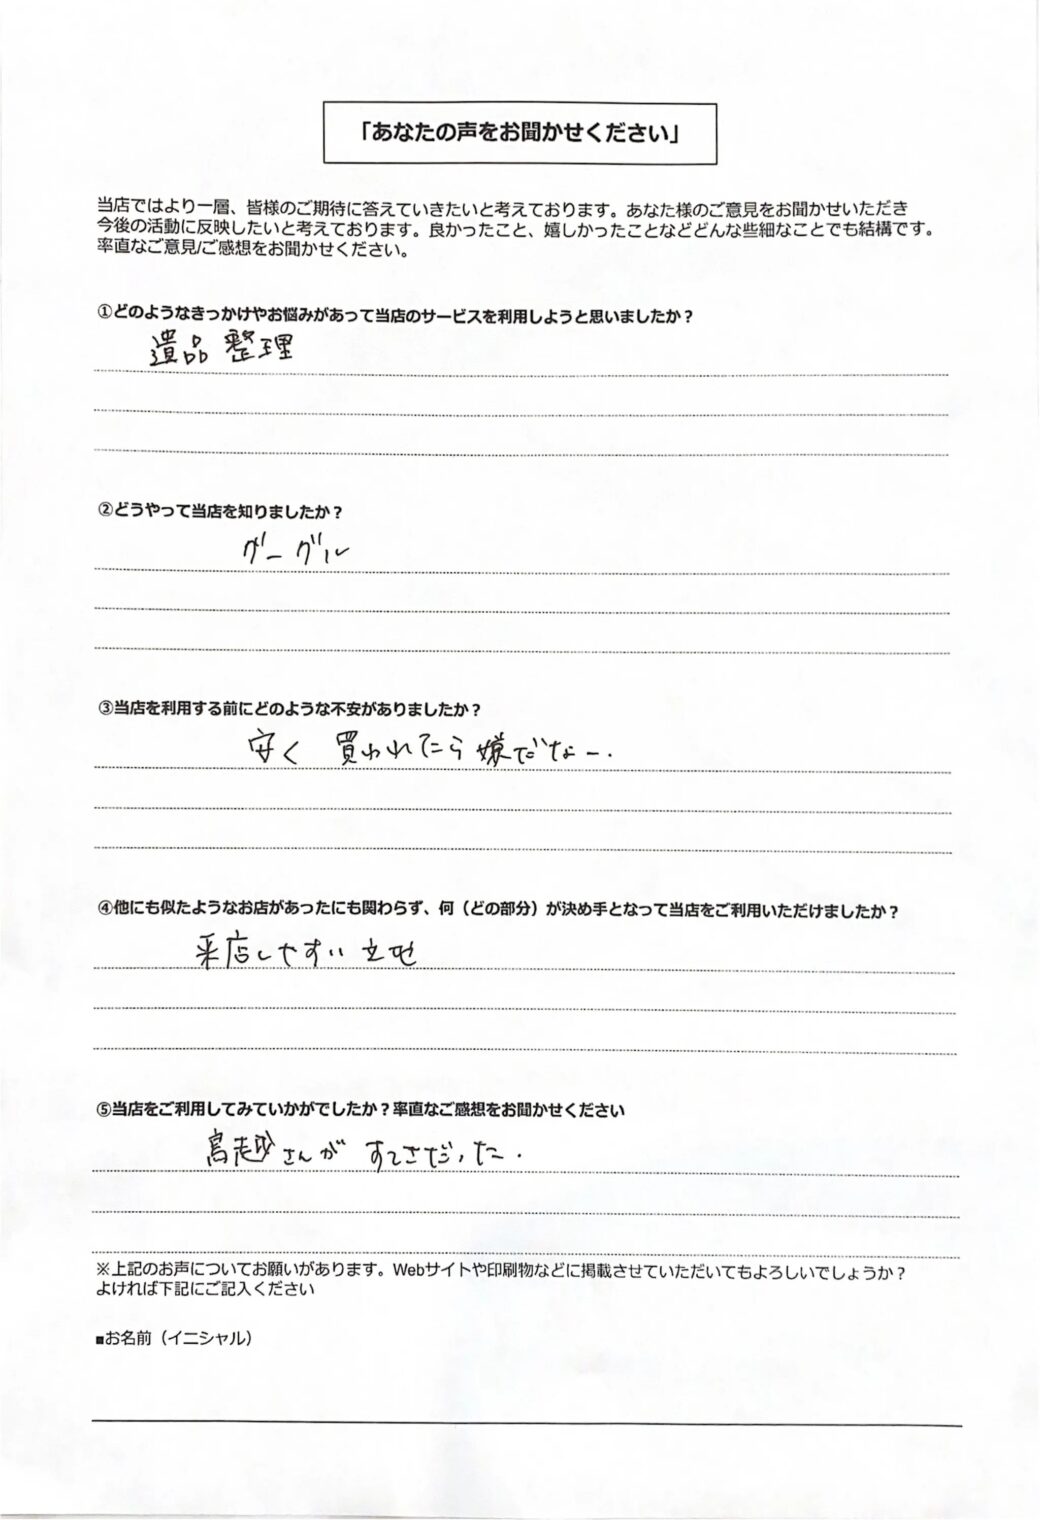 「あなたの声をお聞かせください」
当店ではより一層、皆様のご期待に答えていきたいと考えております。あなた様のご意見をお聞かせいただき
今後の活動に反映したいと考えております。良かったこと、嬉しかったことなどどんな些細なことでも結構です。
率直なご意見/ご感想をお聞かせください。
①どのようなきっかけやお悩みがあって当店のサービスを利用しようと思いましたか？
遺品整理
②どうやって当店を知りましたか？
グーグル
③当店を利用する前にどのような不安がありましたか？
安く 買われたら嫌だなー.
④他にも似たようなお店があったにも関わらず、何（どの部分）が決め手となって当店をご利用いただけましたか？
来店しやすい立地
⑤当店をご利用してみていかがでしたか？率直なご感想をお聞かせください
鳥越さんが すてきだった.
※上記のお声についてお願いがあります。Webサイトや印刷物などに掲載させていただいてもよろしいでしょうか？
よければ下記にご記入ください
■お名前（イニシャル）